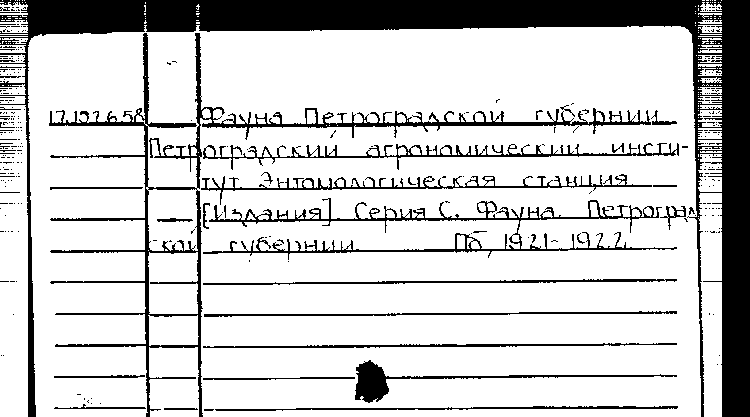 17.197.6.58 Фауна Петроградской губернии
Петроградский агрономический инсти-
тут. Энтомологическая станция.
— [Издания]. Серия С. Фауна Петроград
ской губернии. Пб, 1921-1922.